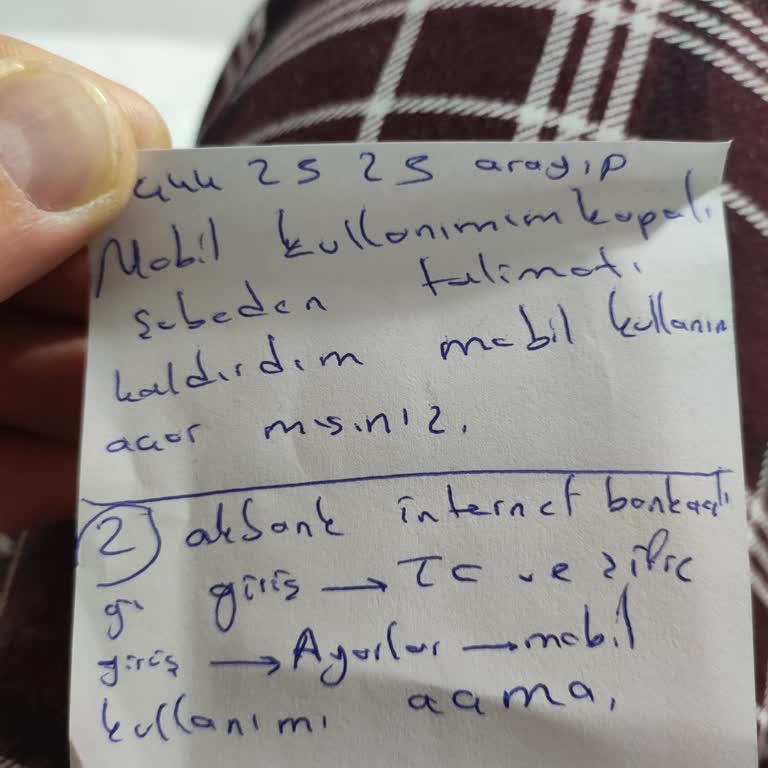 444 25 25 arayıp
Mobil kullanımım kapalı
Şubeden talimatı
kaldırdım mobil kullanım
açar mısınız.
2 akbank internet bankacılı
ğı giriş → TC ve şifre
giriş → Ayarlar → mobil
kullanımı açma,